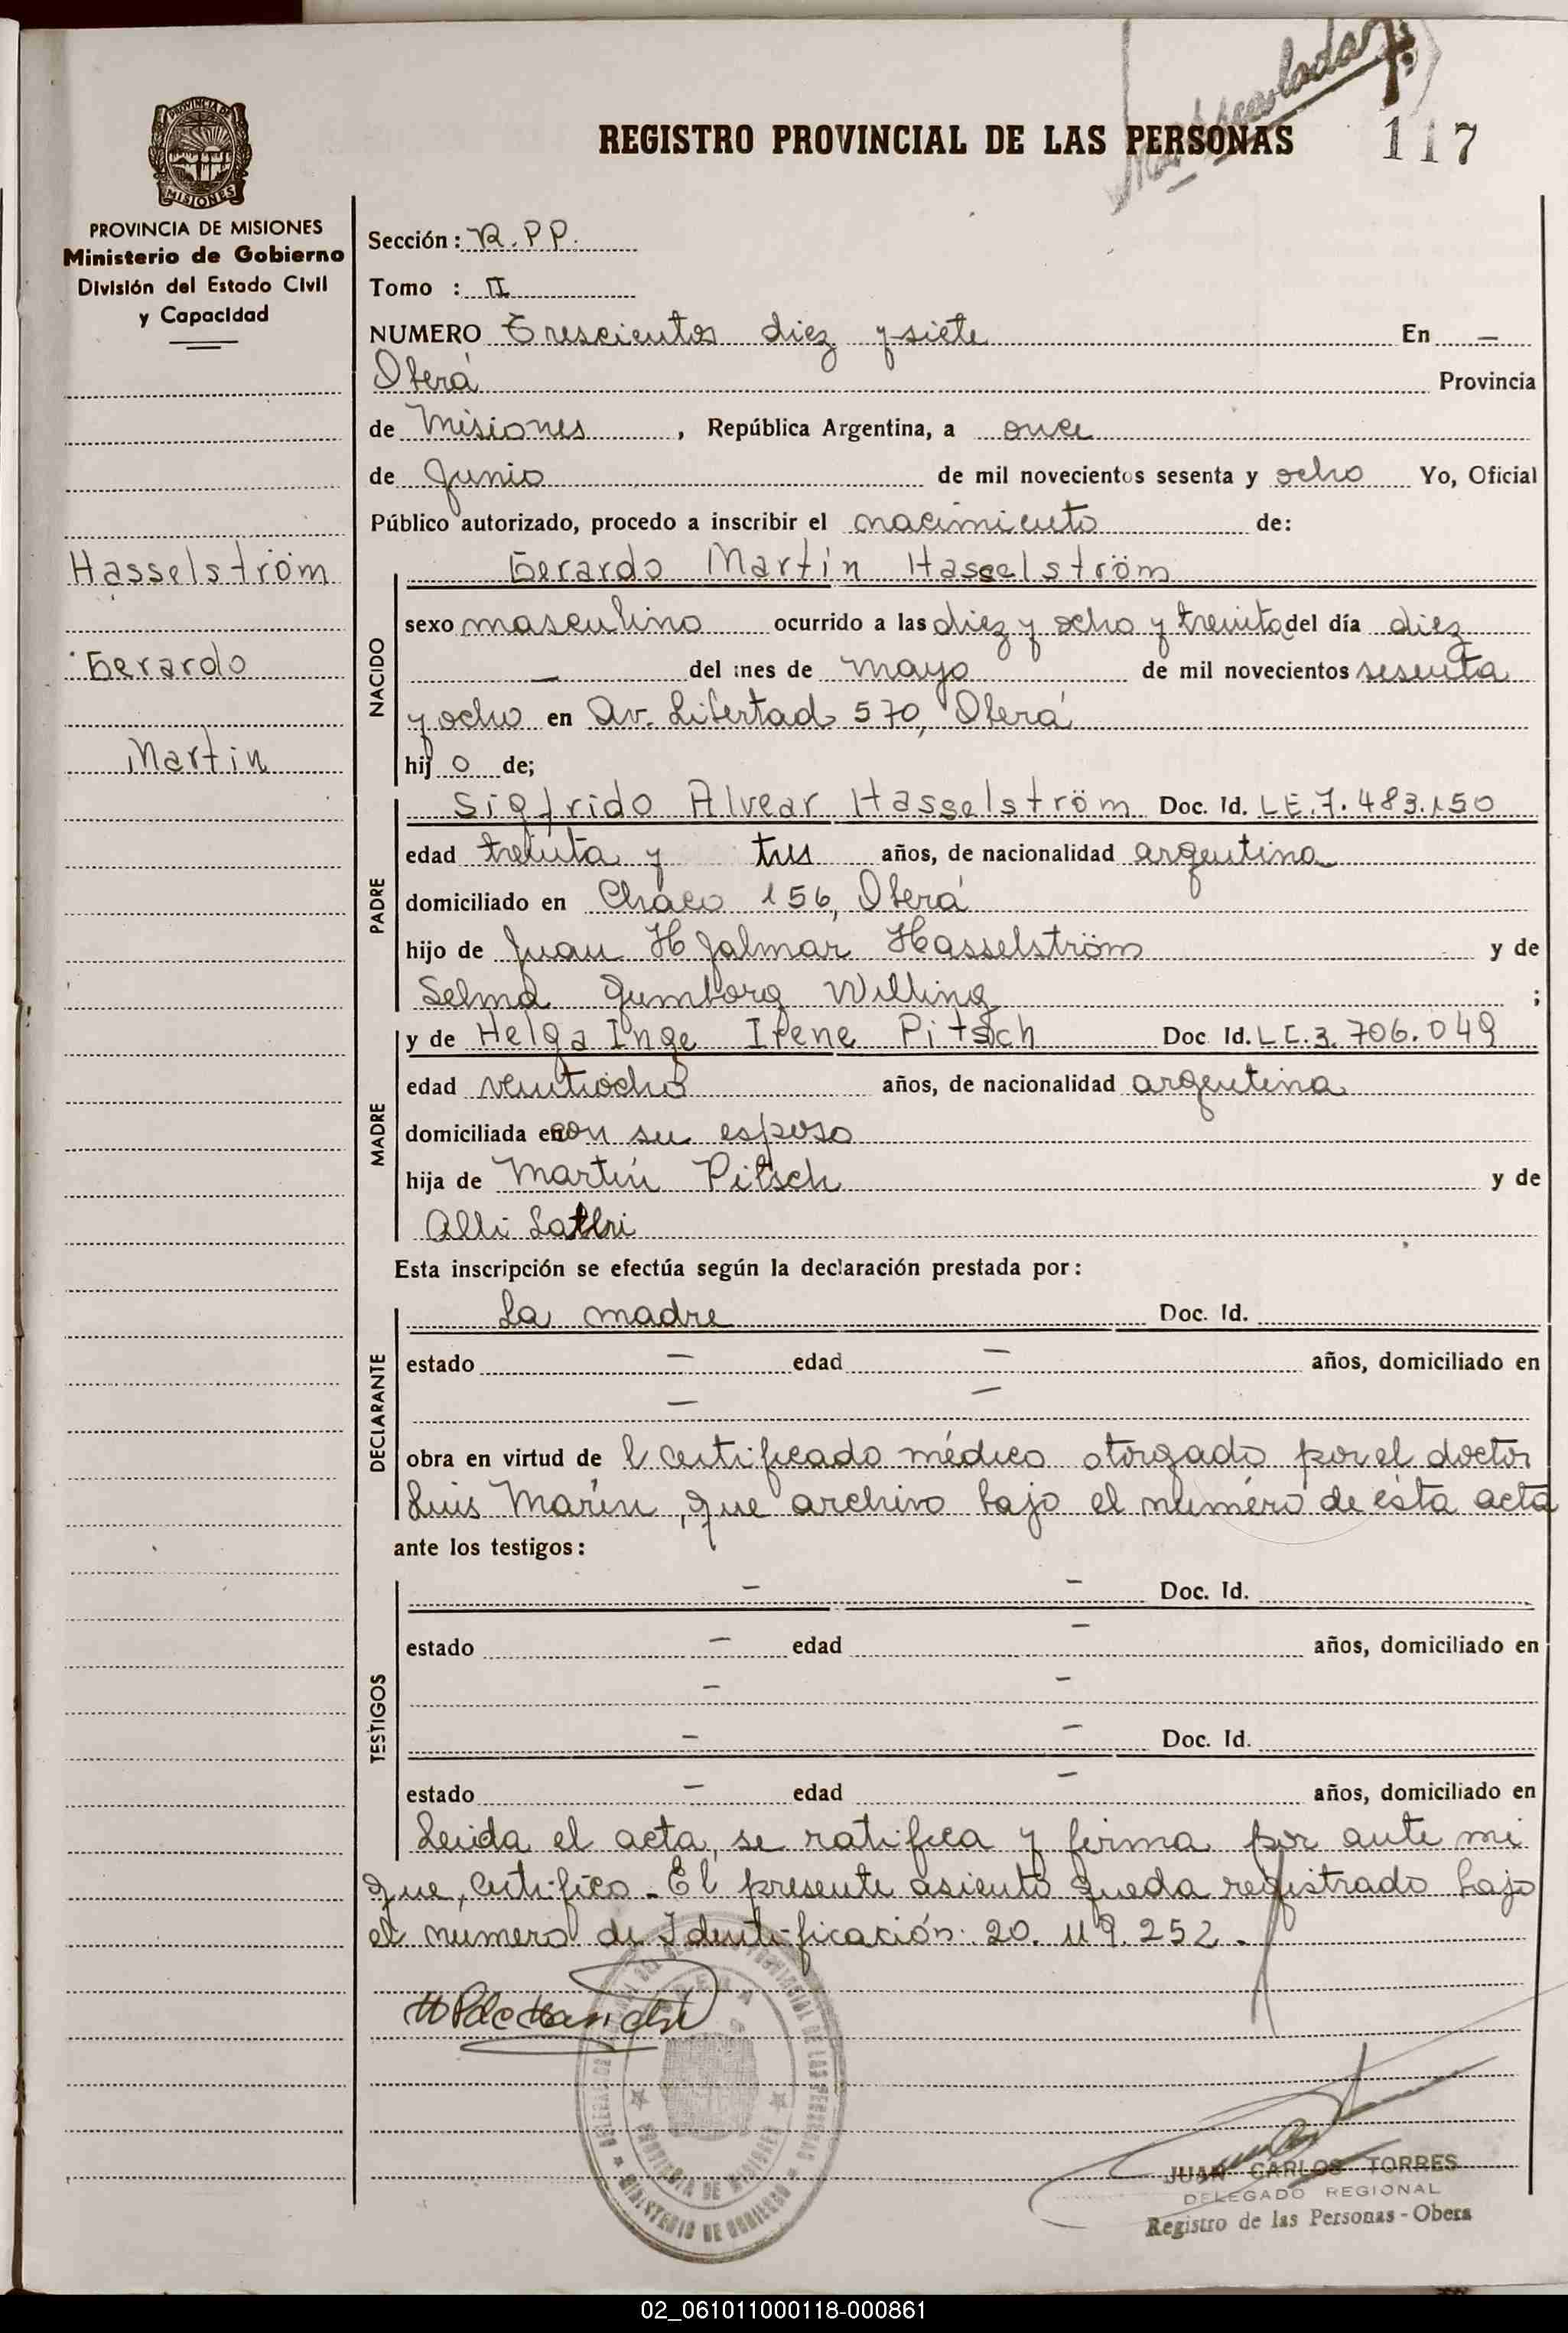 117
REGISTRO PROVINCIAL DE LAS PERSONAS
PROVINCIA DE MISIONES
MISIONES
PROVINCIA DE MISIONES
Ministerio de Gobierno
División del Estado Civil
y Capacidad
Sección: R.P.P.
Tomo : II
NUMERO Trescientos diez y siete En —
Oberá Provincia
de Misiones, República Argentina, a once
de Junio de mil novecientos sesenta y ocho Yo, Oficial
Público autorizado, procedo a inscribir el nacimiento de:
Hasselström
Gerardo
Martín
NACIDO
Gerardo Martín Hasselström
sexo masculino ocurrido a las diez y ocho y treinta del día diez
— del mes de mayo de mil novecientos sesenta
y ocho en Av. Libertad 570, Oberá
hijo de;
PADRE
Sigfrido Alvear Hasselström Doc. Id. L.E. 7.483.150
edad treinta y tres años, de nacionalidad argentina
domiciliado en Chaco 156, Oberá
hijo de Juan Hjalmar Hasselström y de
Selma Willing ;
MADRE
y de Helga Inge Irene Pitsch Doc Id. L.C. 3.706.049
edad veintiocho años, de nacionalidad argentina
domiciliada en con su esposo
hija de Martín Pitsch y de
Alli
Esta inscripción se efectúa según la declaración prestada por:
DECLARANTE
La madre Doc. Id.
estado — edad — años, domiciliado en
— —
obra en virtud de l certificado médico otorgado por el doctor
Luis Marín, que archivo bajo el número de ésta acta
ante los testigos:
TESTIGOS
— — Doc. Id.
estado — edad — años, domiciliado en
— —
— — Doc. Id.
estado — edad — años, domiciliado en
Leída el acta, se ratifica y firma por ante mi
que, certifico. El presente asiento queda registrado bajo
el número de Identificación: 20.119.252.
REGISTRO PROVINCIAL DE LAS PERSONAS
OBERA
PROVINCIA DE MISIONES
MINISTERIO DE GOBIERNO
JUAN CARLOS TORRES
DELEGADO REGIONAL
Registro de las Personas - Obera
02_061011000118-000861